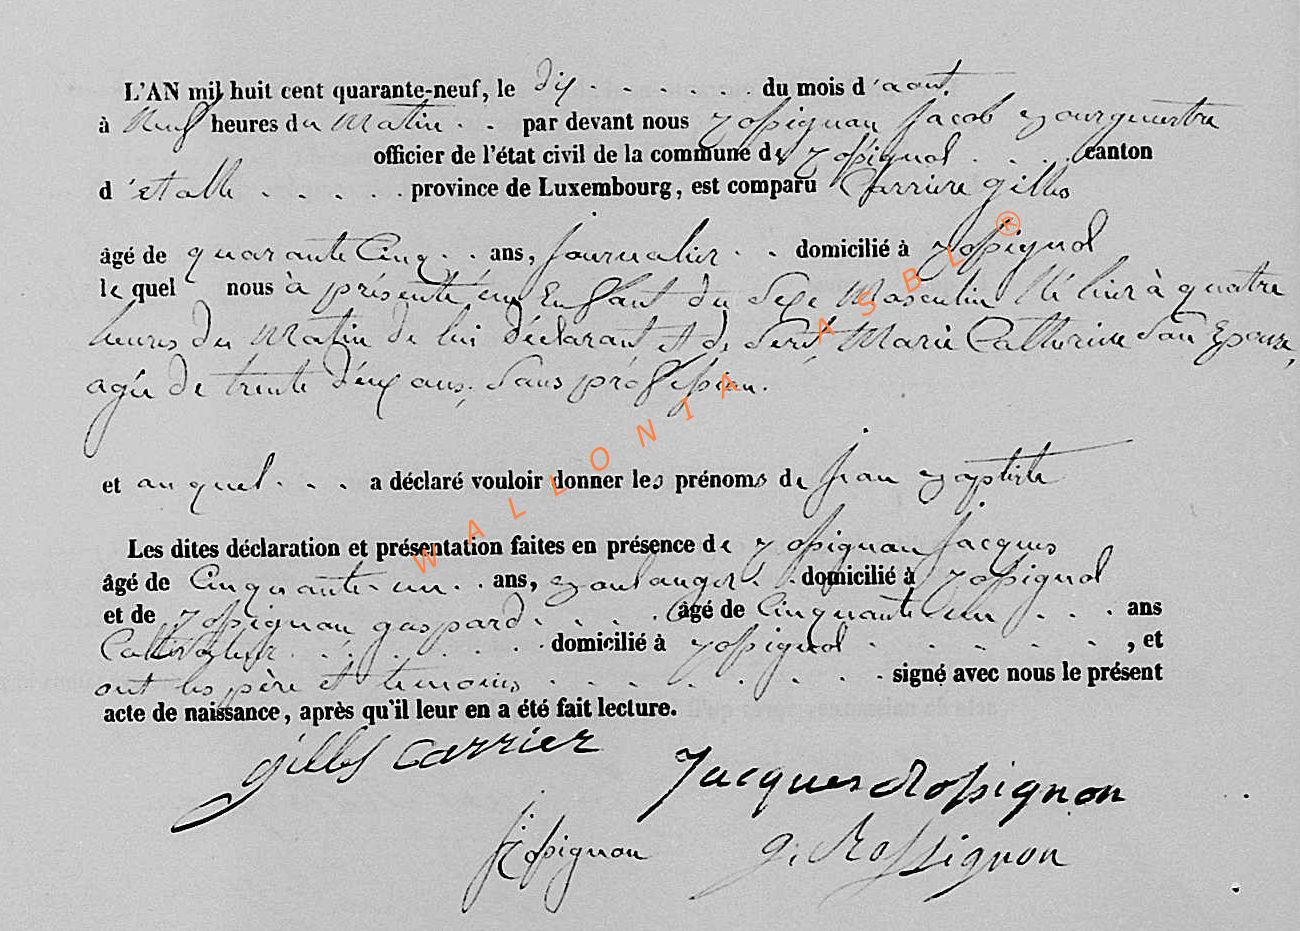 L'AN mil huit cent quarante-neuf, le dix . . . . . . du mois d'aout,
à Neuf heures du Matin . . par devant nous Rossignon Jacob Bourguestre
officier de l'état civil de la commune de Rossignol . . . . canton
d'étalle . . . . . province de Luxembourg, est comparu Carriere gilles
âgé de quarante Cinq . . ans, Journalier . . domicilié à Rossignol
le quel nous à présenté un Enfant du Sexe Masculin Né hier à quatre
heures du Matin de lui déclarant et de Marie Catherine Son Epouse,
agée de trente deux ans, Sans profession.
et auquel . . . a déclaré vouloir donner les prénoms de jean Baptiste
Les dites déclaration et présentation faites en présence de Rossignon Jacques
âgé de Cinquante-un . . ans, Boulanger . . domicilié à Rossignol
et de Rossignon gaspard . . . . âgé de Cinquante un . . . ans
Cultivateur . . . . . . . . domicilié à Rossignol . . . . . . , et
ont les père et temoins . . . . . . . . signé avec nous le présent
acte de naissance, après qu'il leur en a été fait lecture.
gilles carrier
Jacques Rossignon
J Rossignon g. Rossignon
WALLONIA ASBL ®